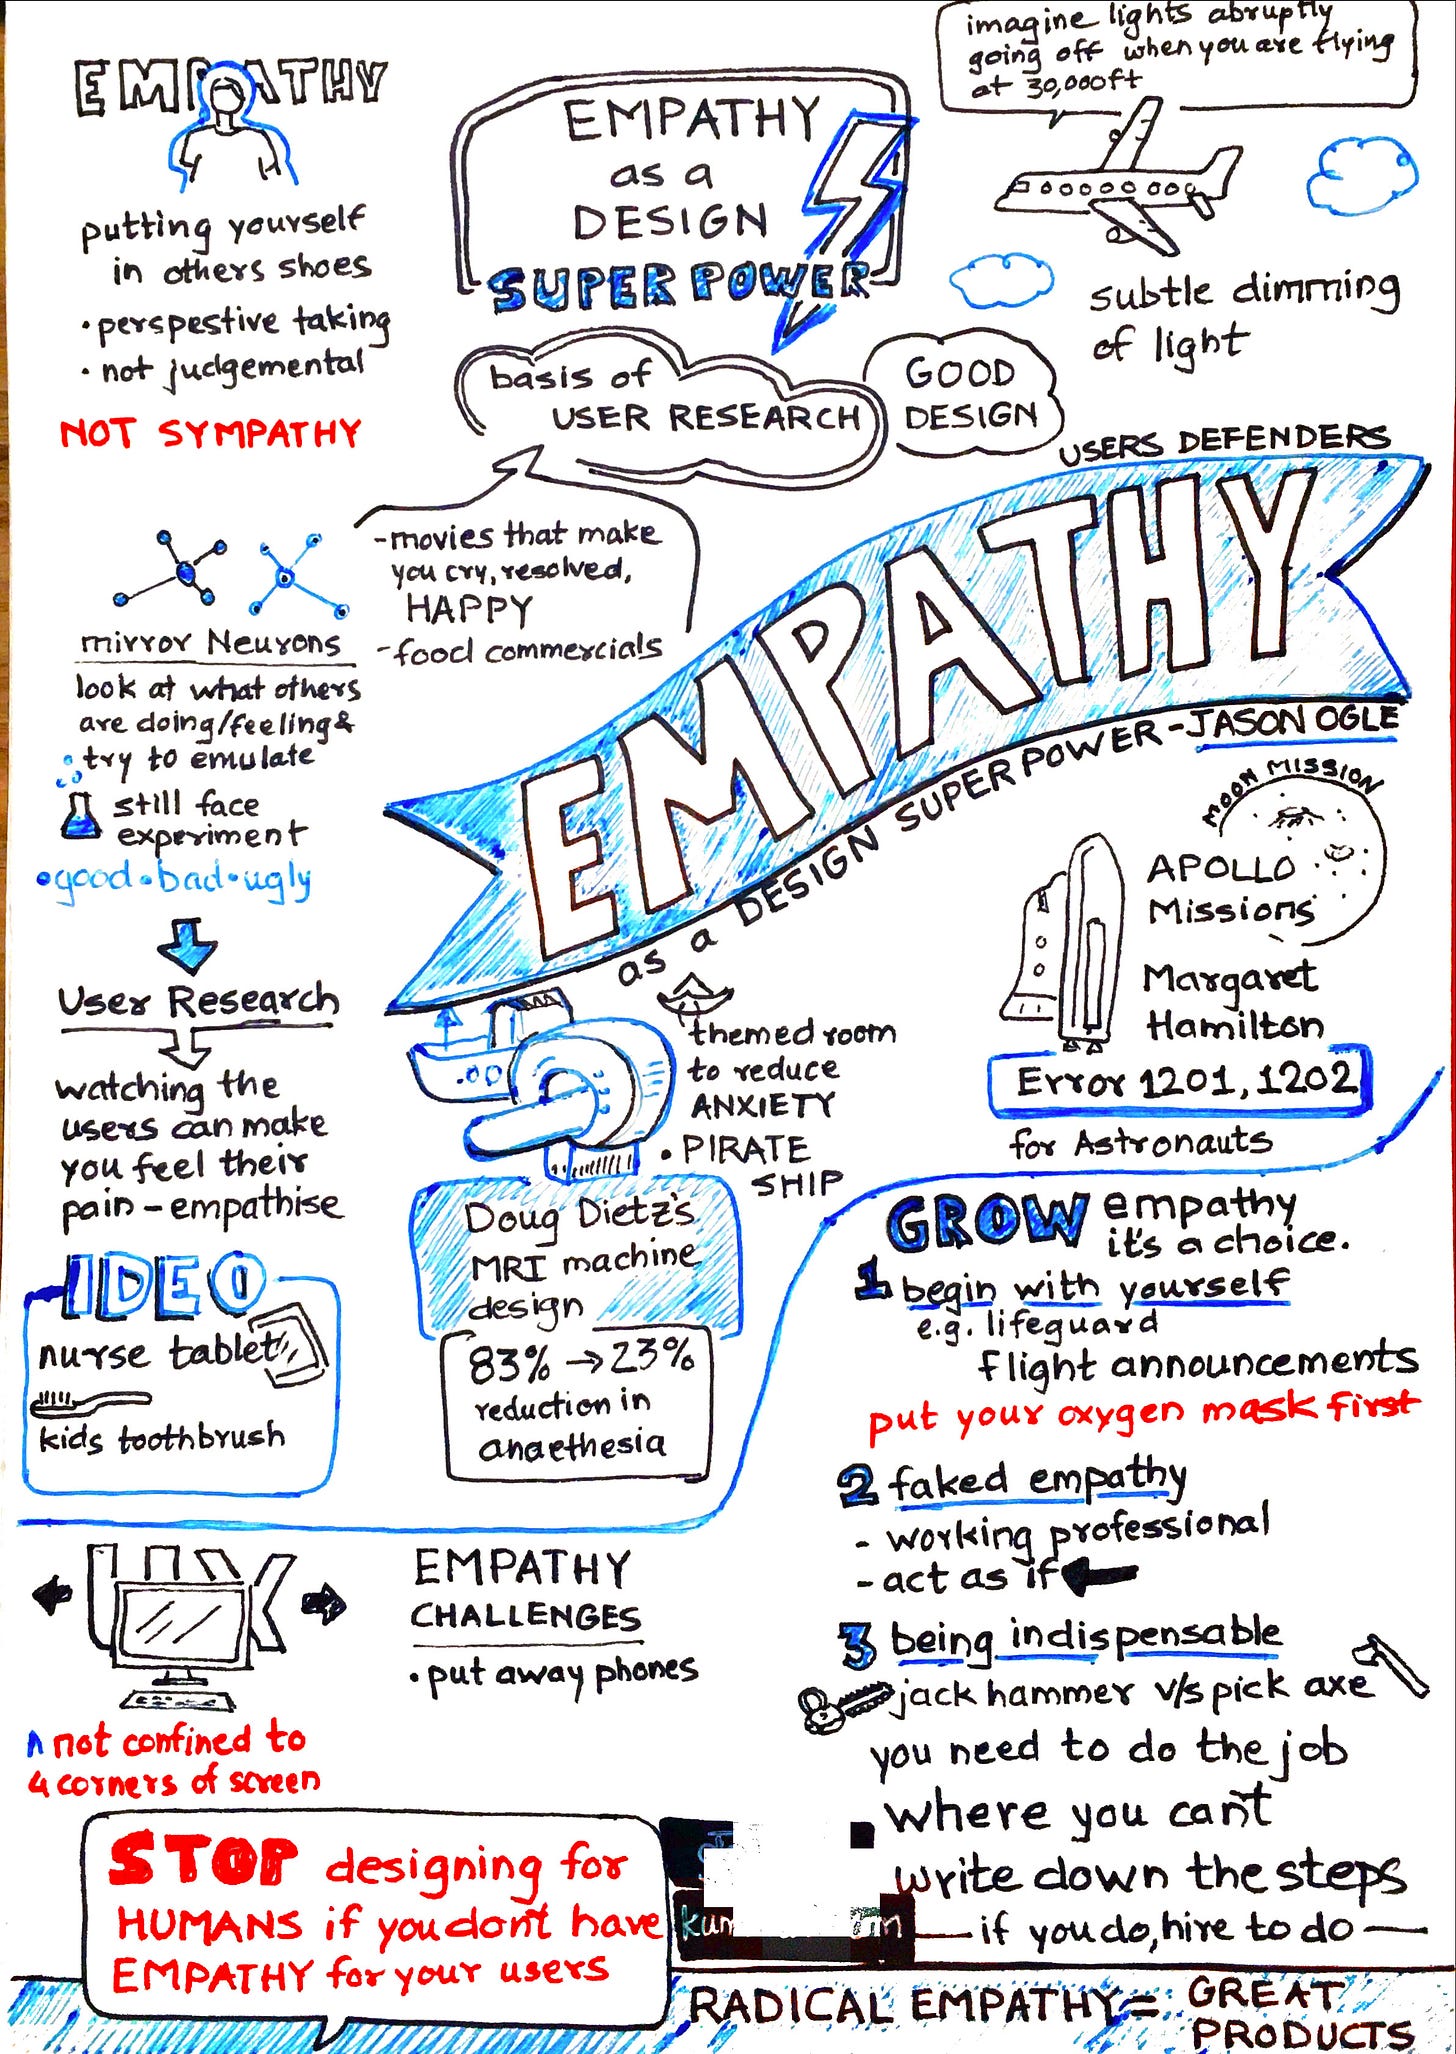 EMPATHY
putting yourself
in others shoes
• perspestive taking
• not judgemental
NOT SYMPATHY
EMPATHY
as a
DESIGN
SUPER POWER
basis of
USER RESEARCH
GOOD
DESIGN
imagine lights abruptly
going off when you are flying
at 30,000ft
subtle dimming
of light
USERS DEFENDERS
EMPATHY
as a DESIGN SUPER POWER - JASON OGLE
- movies that make
you cry, resolved,
HAPPY
- food commercials
mirror Neurons
look at what others
are doing/feeling &
try to emulate
still face
experiment
• good • bad • ugly
User Research
watching the
users can make
you feel their
pain - empathise
IDEO
nurse tablet
kids toothbrush
themed room
to reduce
ANXIETY
• PIRATE
SHIP
Doug Dietz's
MRI machine
design
83% → 23%
reduction in
anaethesia
MOON MISSION
APOLLO
Missions
Margaret
Hamilton
Error 1201, 1202
for Astronauts
GROW empathy
it's a choice.
1 begin with yourself
e.g. lifeguard
flight announcements
put your oxygen mask first
2 faked empathy
- working professional
- act as if
3 being indispensable
jack hammer v/s pick axe
you need to do the job
where you can't
write down the steps
— if you do, hire to do —
UX
not confined to
4 corners of screen
EMPATHY
CHALLENGES
• put away phones
STOP designing for
HUMANS if you don't have
EMPATHY for your users
RADICAL EMPATHY = GREAT
PRODUCTS